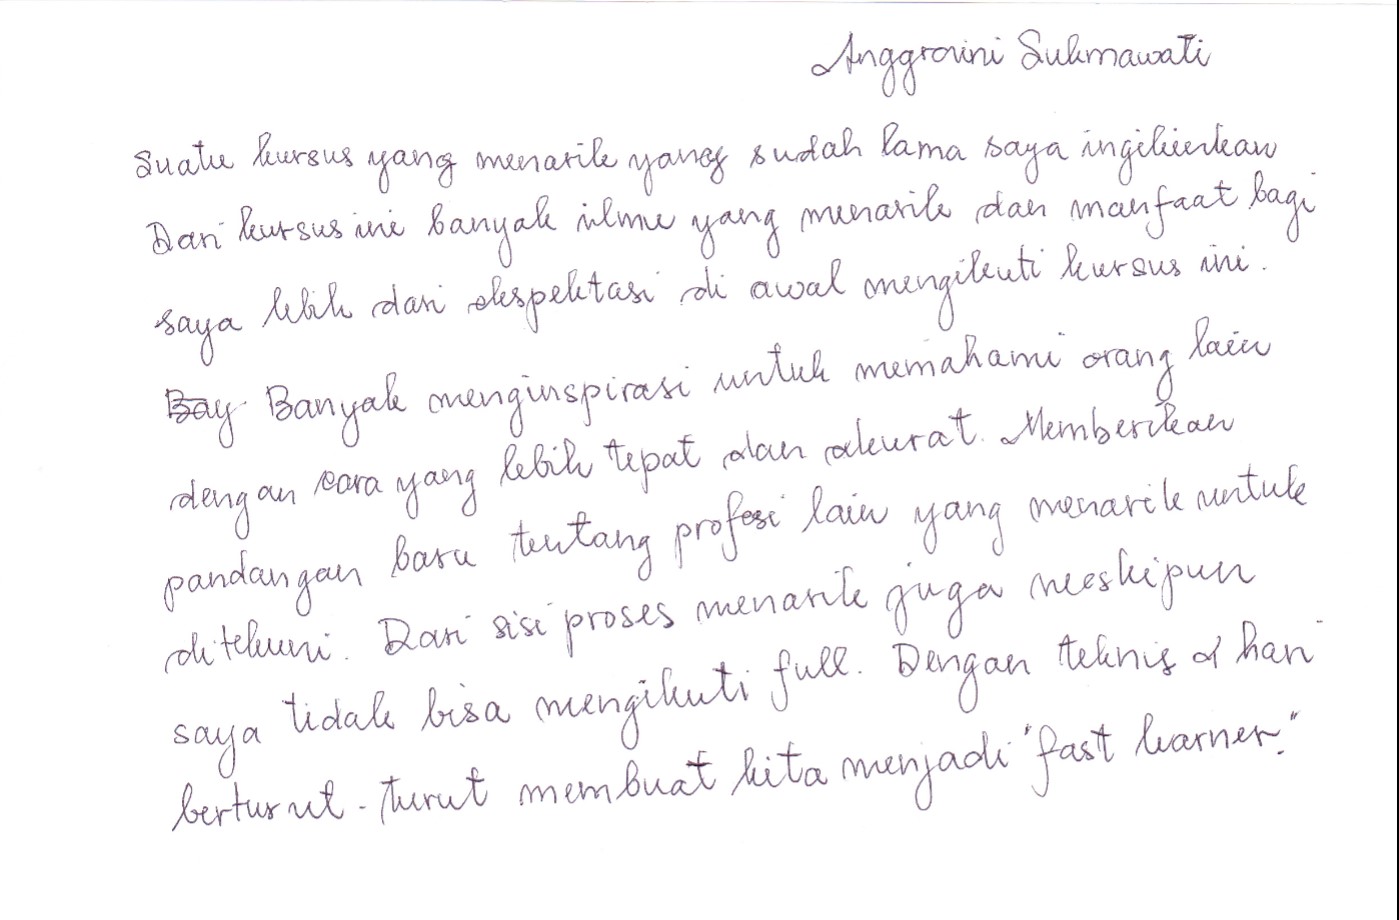 Anggraini Sukmawati
Suatu kursus yang menarik yang sudah lama saya inginkan
Dari kursus ini banyak ilmu yang menarik dan manfaat bagi
saya lebih dari ekspektasi di awal mengikuti kursus ini.
Bay Banyak menginspirasi untuk memahami orang lain
dengan cara yang lebih tepat dan akurat. Memberikan
pandangan baru tentang profesi lain yang menarik untuk
ditekuni. Dari sisi proses menarik juga meskipun
saya tidak bisa mengikuti full. Dengan teknis hari
berturut-turut membuat kita menjadi "fast learner."